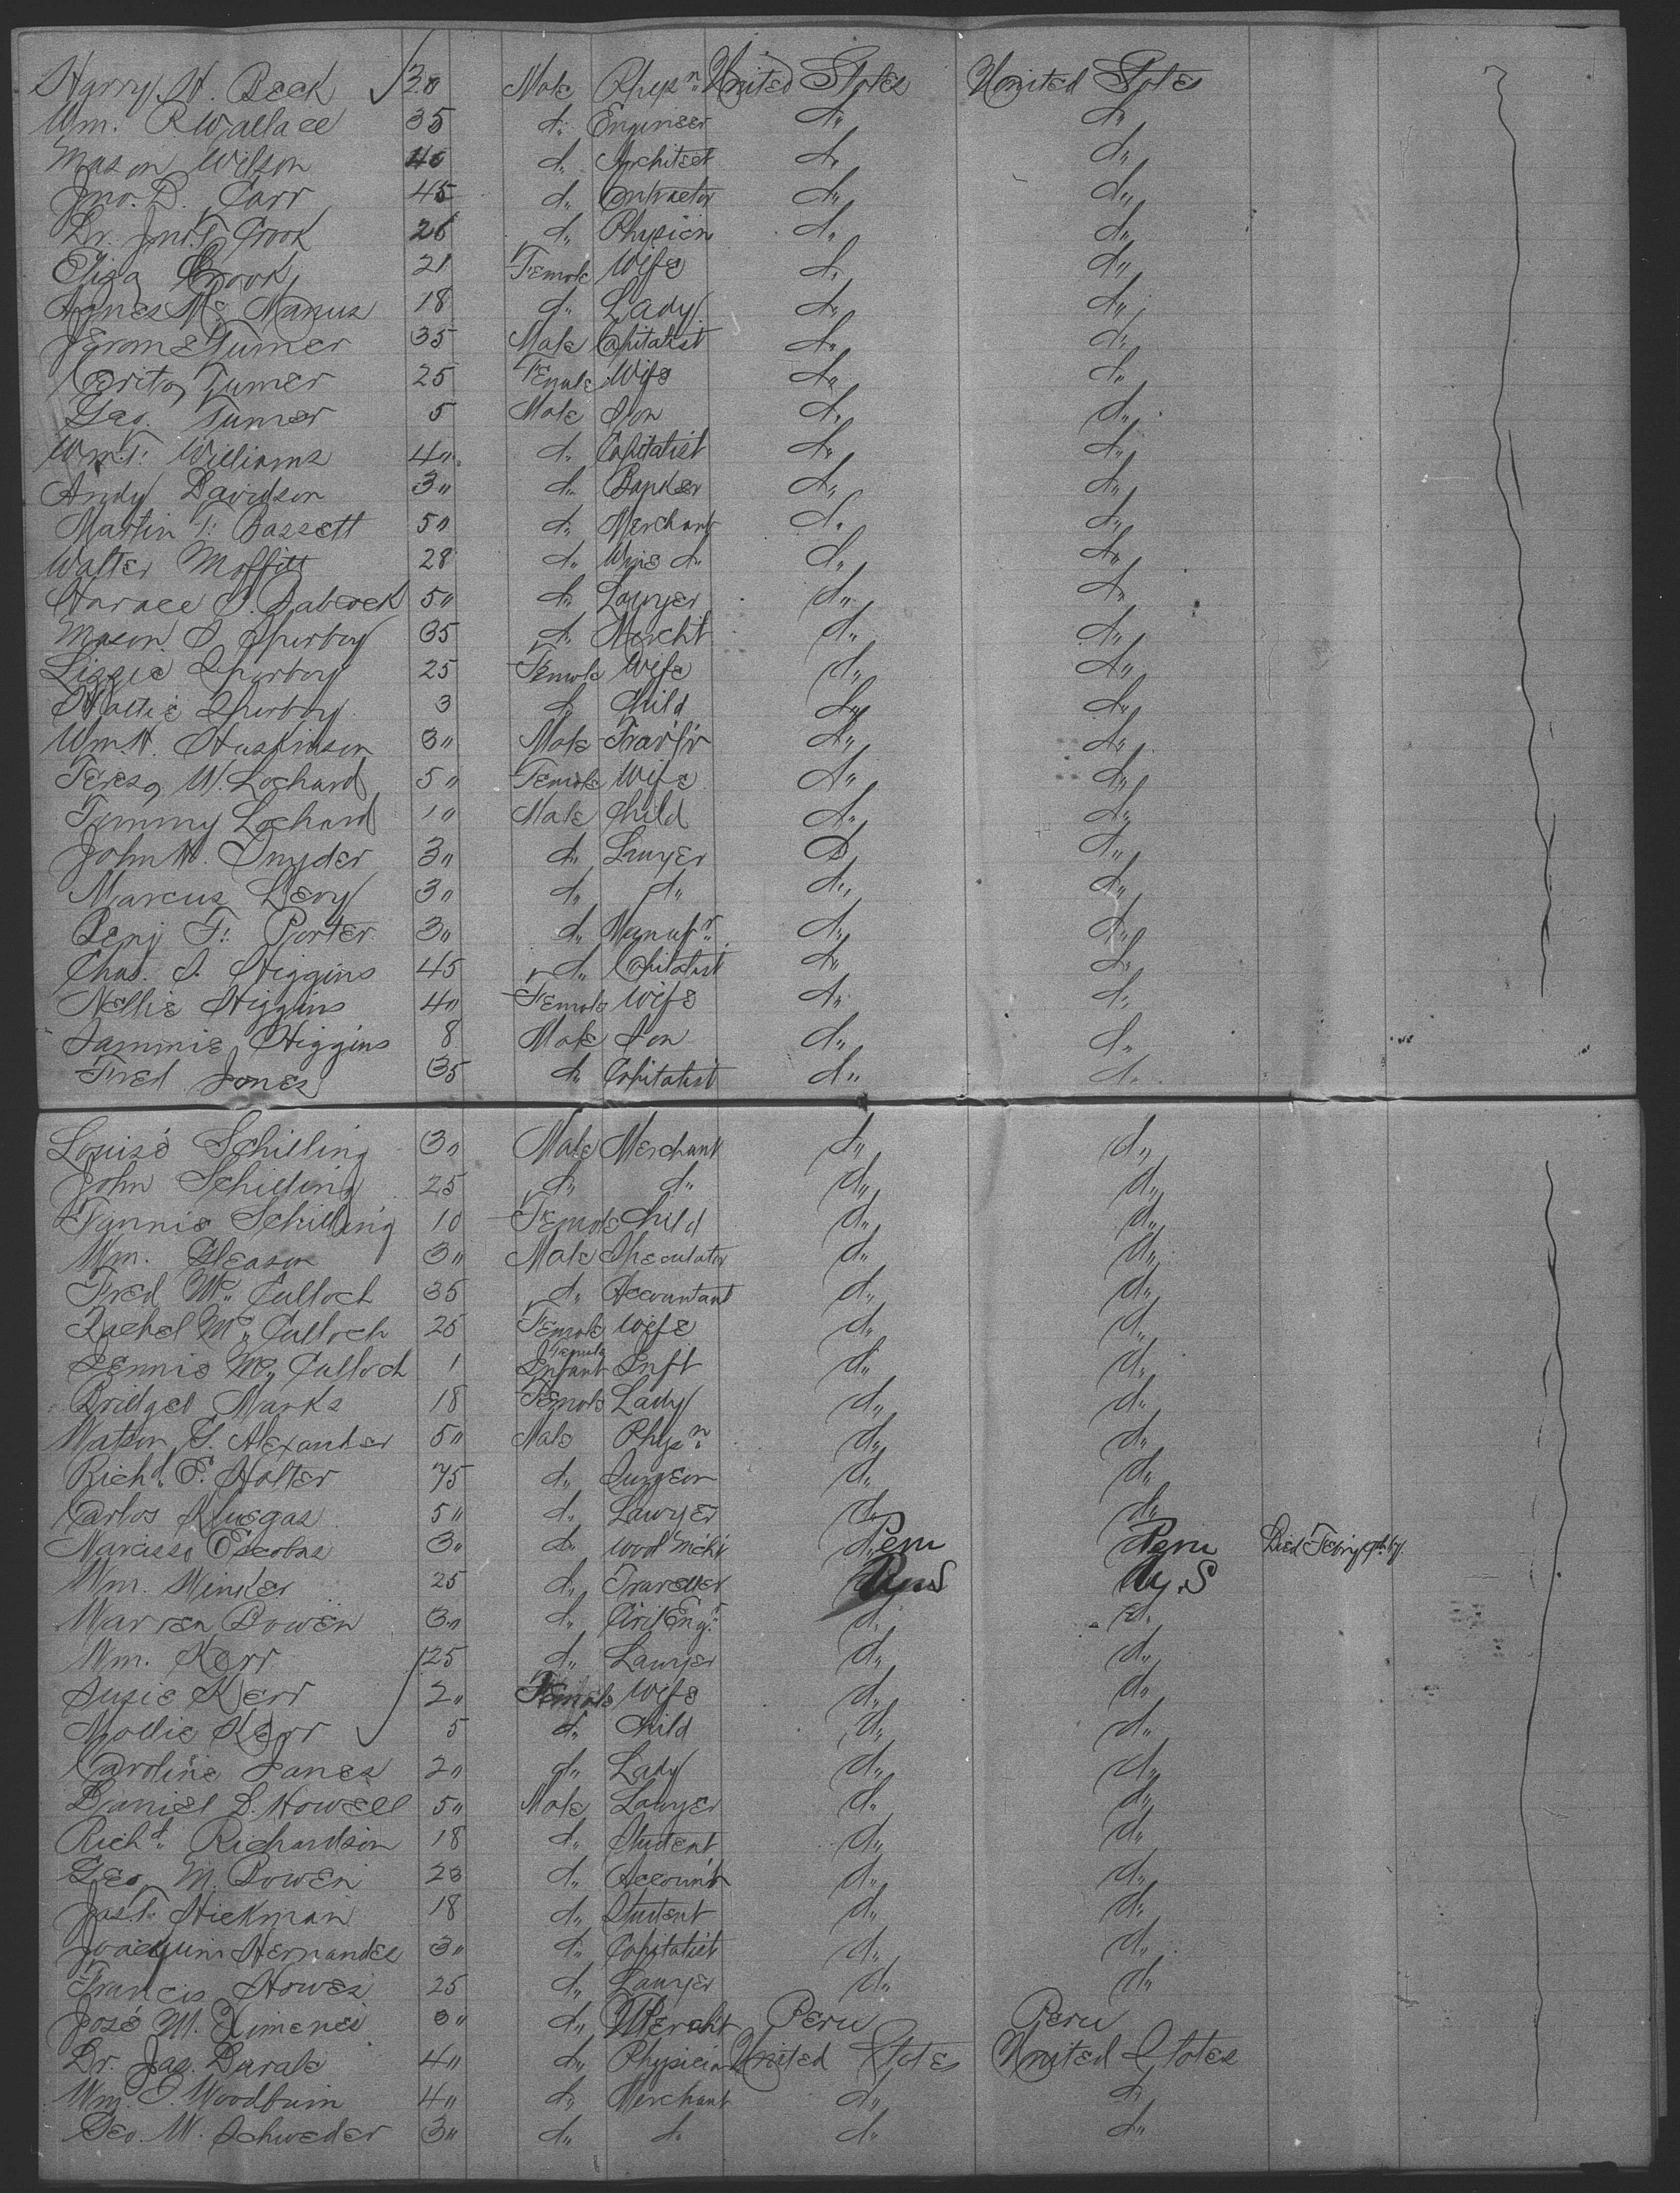 Harry H. Beck 30 Male Physn United States United States
Wm. R Wallace 35 do Engineer do do
Mason Wilson 40 do Architect do do
Jno. D. Carr 45 do Contractor do do
Dr. Jno. T Crook 26 do Physicn do do
Eliza Crook 21 Female Wife do do
Agnes Mc Manus 18 do Lady do do
Jerome Turner 35 Male Capitalist do do
Turner 25 Female Wife do do
Geo. Turner 5 Male Son do do
Wm T. Williams 40 do Capitalist do do
Andy Davidson 30 do do do
Martin T. Bassett 50 do Merchant do do
Walter Moffitt 28 do Wine do do do
Horace S. Babcock 50 do Lawyer do do
Mason S. 35 do Mercht do do
Lizzie 25 Female Wife do do
3 do Child do do
Wm H. Huskinson 30 Male do do
Teresa W. Lochard 50 Female Wife do do
Tommy Lochard 10 Male Child do do
John H. Snyder 30 do Lawyer do do
Marcus Levy 30 do do do do
Benj F. Porter 30 do Manufr do do
Chas. S. Higgins 45 do Capitalist do do
Nellie Higgins 40 Female Wife do do
Sammie Higgins 8 Male Son do do
Fred Jones 35 do Capitalist do do
Louise Schilling 30 Male Merchant do do
John Schilling 25 do do do do
Fannie Schilling 10 Female Child do do
Wm. Gleason 30 Male Speculator do do
Fred Mc Culloch 35 do Accountant do do
Rachel Mc Culloch 25 Female Wife do do
Jennie Mc Culloch 1 Female Infant Inft do do
Bridget Marks 18 Female Lady do do
Watson S. Alexander 50 Male Physn do do
Richd. P. Holter 75 do Surgeon do do
Carlos 50 do Lawyer do do
Narcisso Escobar 30 do Wool Mcht Peru Peru Died Febry 9th 67
Wm. Winker 25 do Traveller U.S U.S
Warren Bowen 30 do Civil Engr do do
Wm. Kerr 25 do Lawyer do do
Susie Kerr 20 Female Wife do do
Mollie Kerr 5 do Child do do
Caroline Janes 20 do Lady do do
Daniel D. Howell 50 Male Lawyer do do
Richd. Richardson 18 do Student do do
Geo. M. Bowen 23 do Account do do
Jas. T. Hickman 18 do Student do do
Joaquim Hernandez 30 do Capitalist do do
Francis Howes 25 do Lawyer do do
José M. Ximenes 30 do Mercht Peru Peru
Dr. Jas. 40 do Physician United States United States
Wm. T. Woodburn 40 do Merchant do do
Geo. W. Schweder 30 do do do do